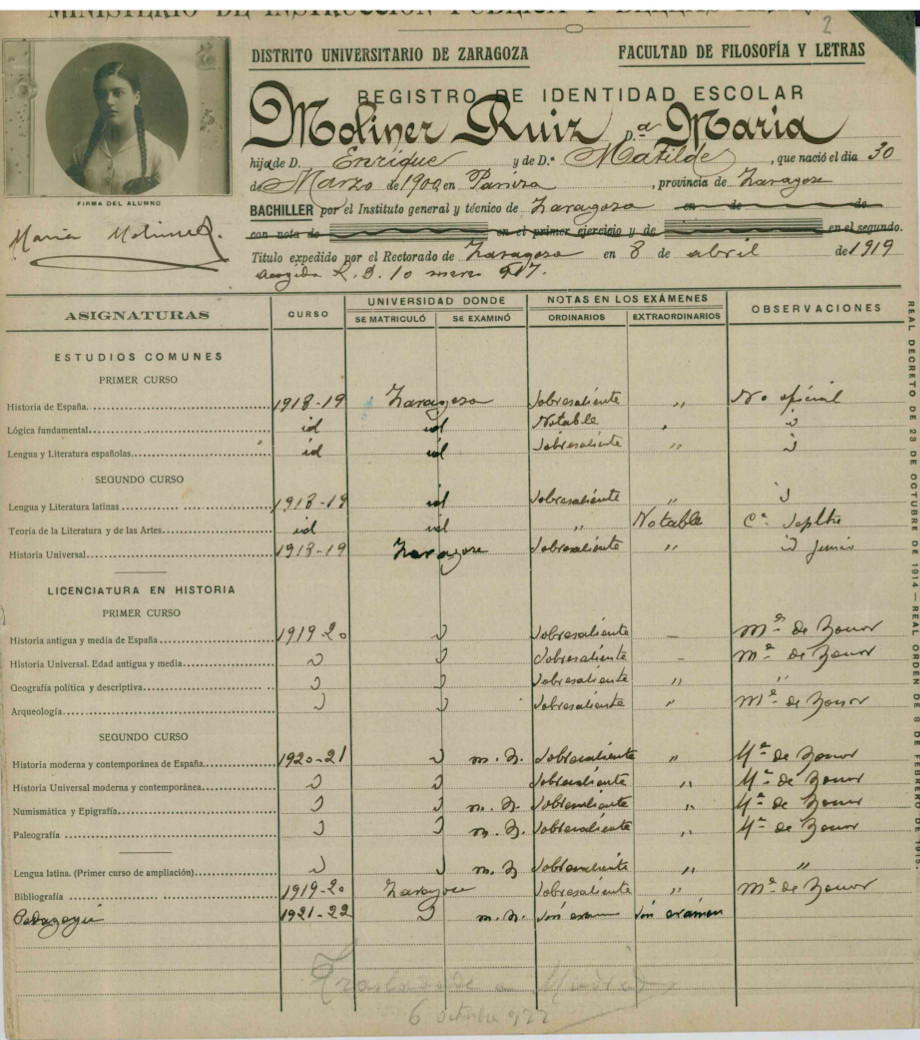 MINISTERIO DE INSTRUCCIÓN PÚBLICA Y BELLAS ARTES
2
DISTRITO UNIVERSITARIO DE ZARAGOZA FACULTAD DE FILOSOFÍA Y LETRAS
REGISTRO DE IDENTIDAD ESCOLAR
Moliner Ruiz D.ª María
hija de D. Enrique y de D.ª Matilde, que nació el día 30
de Marzo de 1900 en Paniza, provincia de Zaragoza
FIRMA DEL ALUMNO
María Moliner
BACHILLER por el Instituto general y técnico de Zaragoza en de de
con nota de en el primer ejercicio y de en el segundo.
Título expedido por el Rectorado de Zaragoza en 8 de abril de 1919
acogida R. D. 10 marzo 917.
ASIGNATURAS CURSO UNIVERSIDAD DONDE NOTAS EN LOS EXÁMENES OBSERVACIONES
SE MATRICULÓ SE EXAMINÓ ORDINARIOS EXTRAORDINARIOS
ESTUDIOS COMUNES
PRIMER CURSO
Historia de España 1918-19 Zaragoza Sobresaliente " No oficial
Lógica fundamental id id Notable " id
Lengua y Literatura españolas id id Sobresaliente " id
SEGUNDO CURSO
Lengua y Literatura latinas 1918-19 id Sobresaliente " id
Teoría de la Literatura y de las Artes id id " Notable Cª Septbre
Historia Universal 1918-19 Zaragoza Sobresaliente " id Junio
LICENCIATURA EN HISTORIA
PRIMER CURSO
Historia antigua y media de España 1919-20 id Sobresaliente — Mª de honor
Historia Universal. Edad antigua y media id id Sobresaliente — Mª de honor
Geografía política y descriptiva id id Sobresaliente " "
Arqueología id id Sobresaliente " Mª de honor
SEGUNDO CURSO
Historia moderna y contemporánea de España 1920-21 id m. h. Sobresaliente " Mª de honor
Historia Universal moderna y contemporánea id id Sobresaliente " Mª de honor
Numismática y Epigrafía id id m. h. Sobresaliente " Mª de honor
Paleografía id id m. h. Sobresaliente " Mª de honor
Lengua latina. (Primer curso de ampliación) id id m. h. Sobresaliente " "
Bibliografía 1919-20 Zaragoza Sobresaliente " Mª de honor
Pedagogía 1921-22 id m. h. Sin examen Sin examen
Trasladada a Madrid
6 octubre 922
REAL DECRETO DE 23 DE OCTUBRE DE 1914 — REAL ORDEN DE 9 DE FEBRERO DE 1915.